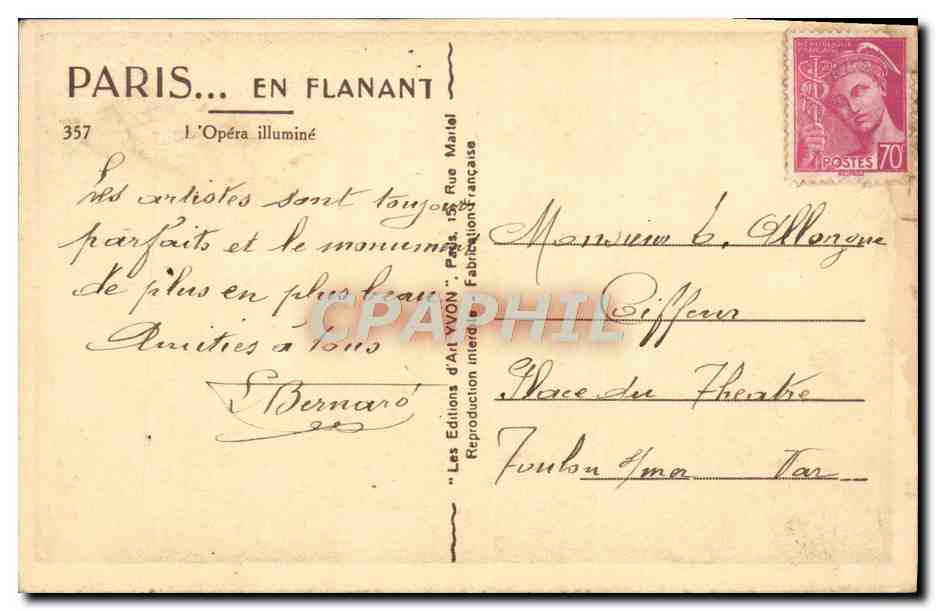 PARIS... EN FLANANT
357 L'Opéra illuminé
Les artistes sont toujours
parfaits et le monument
de plus en plus beau
Amitiés à tous
L Bernard
"Les Editions d'Art YVON". Paris, 15, Rue Martel
Reproduction interdite Fabrication Française
REPUBLIQUE
FRANÇAISE
POSTES 70c
Monsieur b. Allongue
Coiffeur
Place du Theatre
Toulon s/mer Var
CPAPHIL